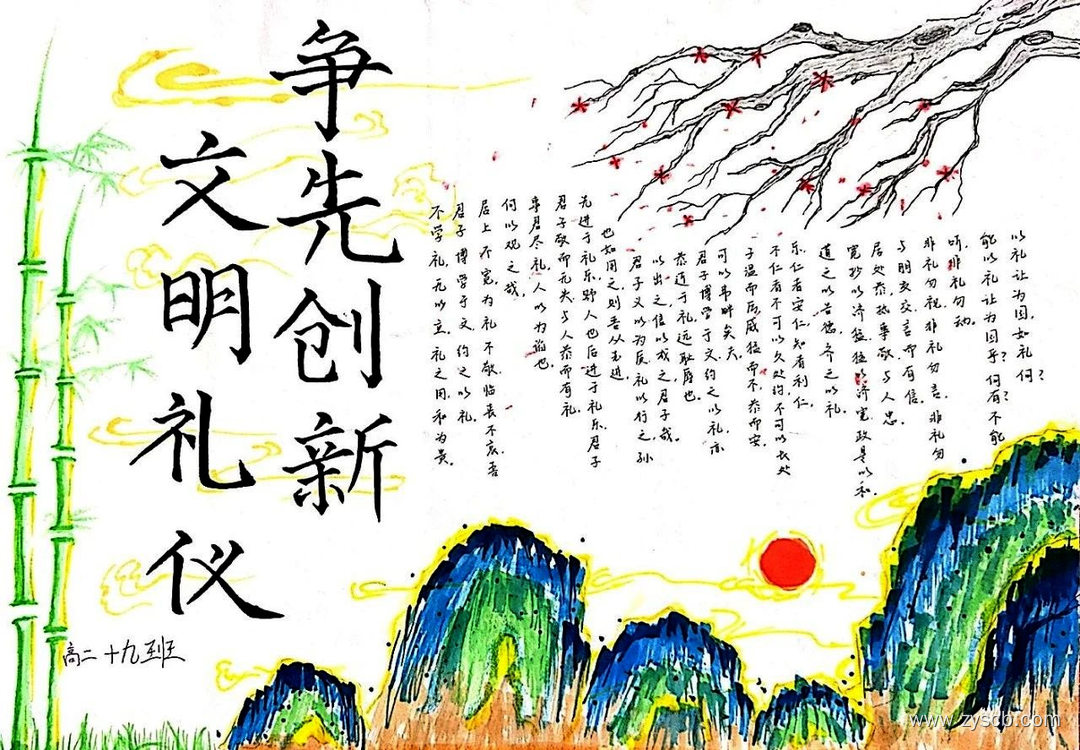 争先创新
文明礼仪
以礼让为国如礼何？
能以礼让为国乎？何有不能
听，非礼勿动。
非礼勿视，非礼勿言，非礼勿
与朋友交言而有信。
居处恭执事敬，与人忠
以济猛猛以济宽政是以和.
道之以德，齐之以礼
乐，仁者安仁，知者利仁
不仁者不可以久处约不可以长处
子温而厉威猛而不，恭而安。
可以弗畔矣夫
君子博学于文约之以礼亦
恭近于礼远耻辱也
以出之信以成之君子哉。
君子义以为质礼以行之，孙
也如用之则吾从先进
先进于礼乐野人也后进于礼乐君子
君子敬而无失与人恭而有礼
事君尽礼，人以为谄也
何以观之哉
居上不宽，为礼不敬，临丧不哀吾
君子博学于文，约之以礼。
不学礼，无以立，礼之用和为贵。
高二十九班